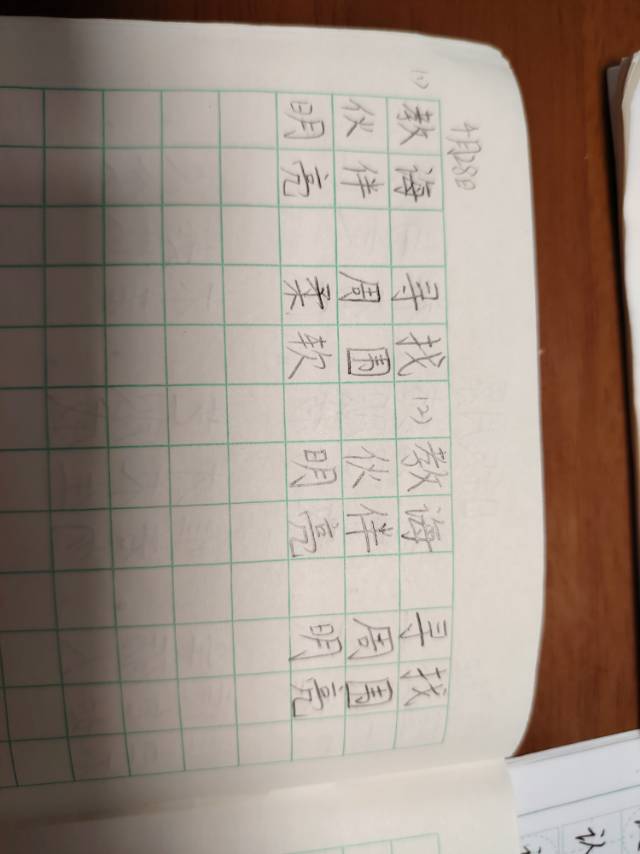 4月28日
(1) 教海 寻找 (2) 教海 寻找
伙伴 周围 伙伴 周围
明亮 柔软 明亮 明亮